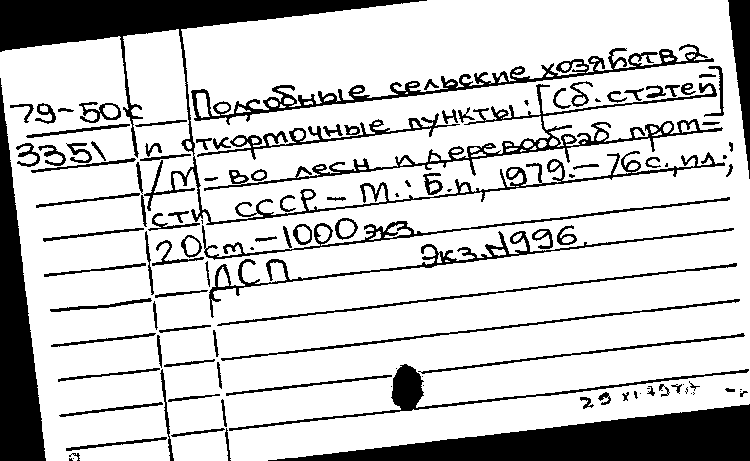 79-50с Подсобные сельские хозяйства
3351 и откормочные пункты: [Сб. статей]
/М-во лесн и деревообраб пром=
сти СССР.- М.: Б.и., 1979.- 76с., ил.;
20см.-1000экз.
ДСП Экз.N996.
29 XI 79